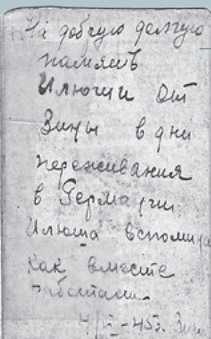 На добрую долгую
память
Илюши от
Зины в дни
переживания
в Германии
Илюша вспомина
как вместе
работали
45г. Зин